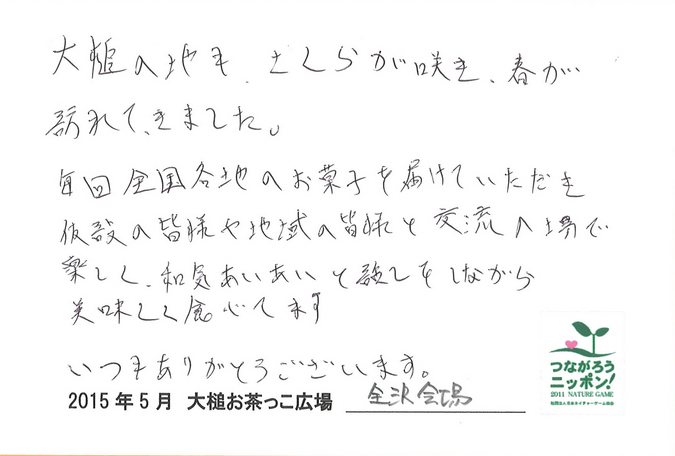 大槌の地も、さくらが咲き、春が
訪れてきました。
毎回全国各地のお菓子を届けていただき
仮設の皆様や地域の皆様と交流の場で
楽しく、和気あいあいと話しをしながら
美味しく食べてます
いつもありがとうございます。
2015年5月 大槌お茶っこ広場 金沢会場
つながろう
ニッポン!
2011 NATURE GAME
社団法人日本ネイチャーゲーム協会